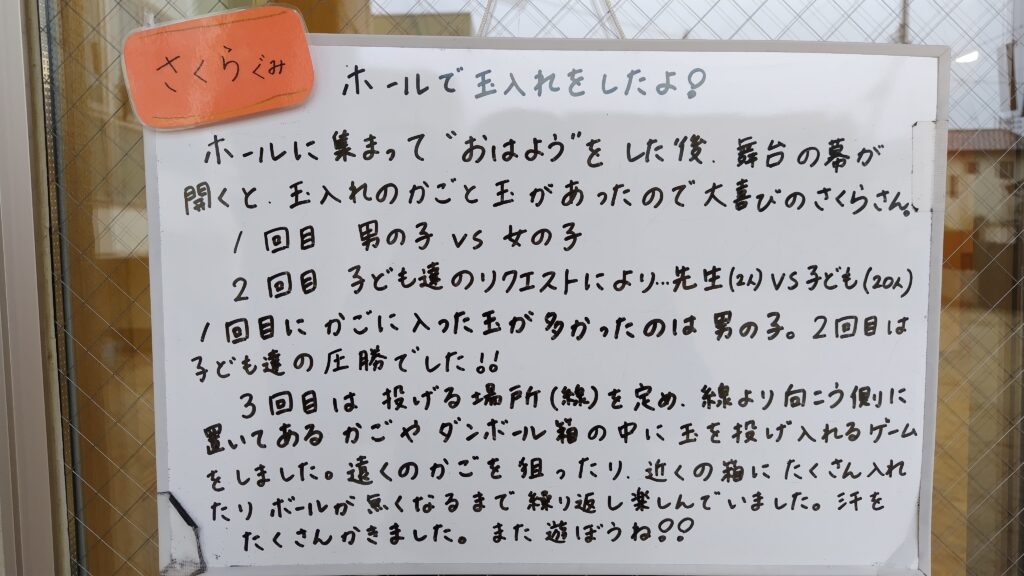 さくらぐみ
ホールで玉入れをしたよ!
ホールに集まって"おはよう"をした後、舞台の幕が
開くと、玉入れのかごと玉があったので大喜びのさくらさん。
1回目 男の子 vs 女の子
2回目 子ども達のリクエストにより…先生(2人)VS子ども(20人)
1回目にかごに入った玉が多かったのは男の子。2回目は
子ども達の圧勝でした!!
3回目は投げる場所(線)を定め、線より向こう側に
置いてあるかごやダンボール箱の中に玉を投げ入れるゲーム
をしました。遠くのかごを狙ったり、近くの箱にたくさん入れ
たりボールが無くなるまで繰り返し楽しんでいました。汗を
たくさんかきました。また遊ぼうね!!